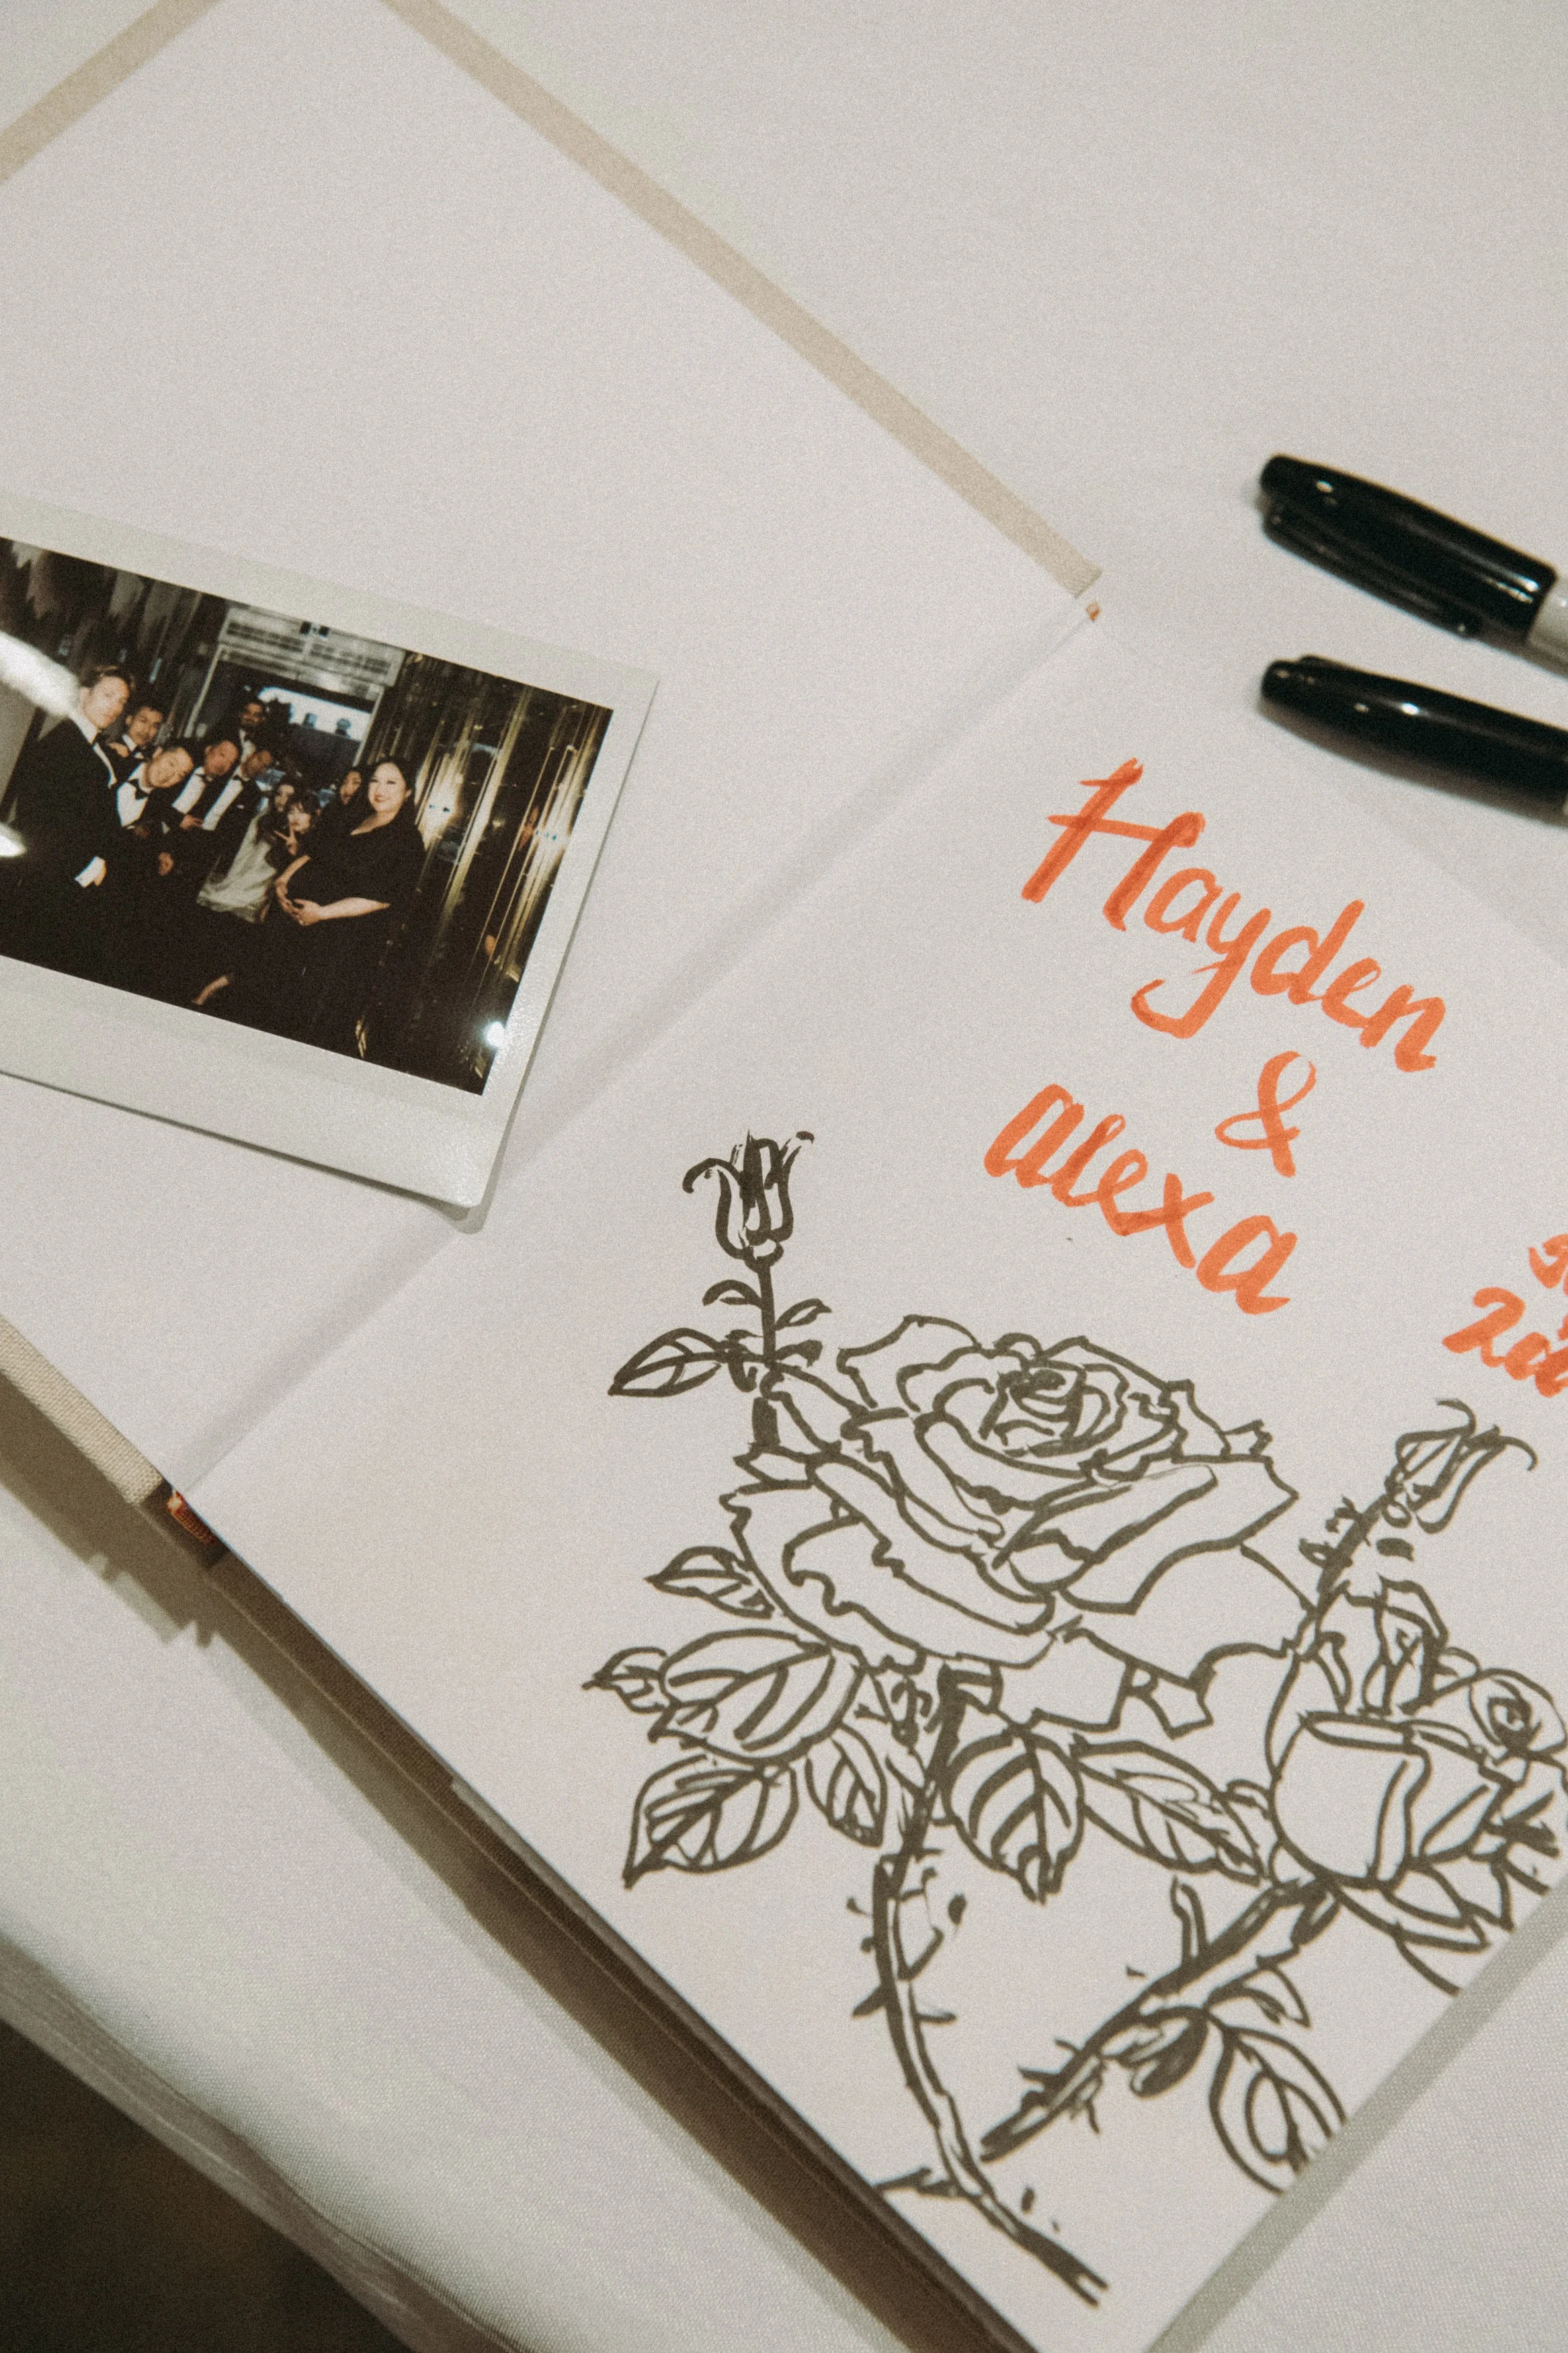 Hayden
&
alexa